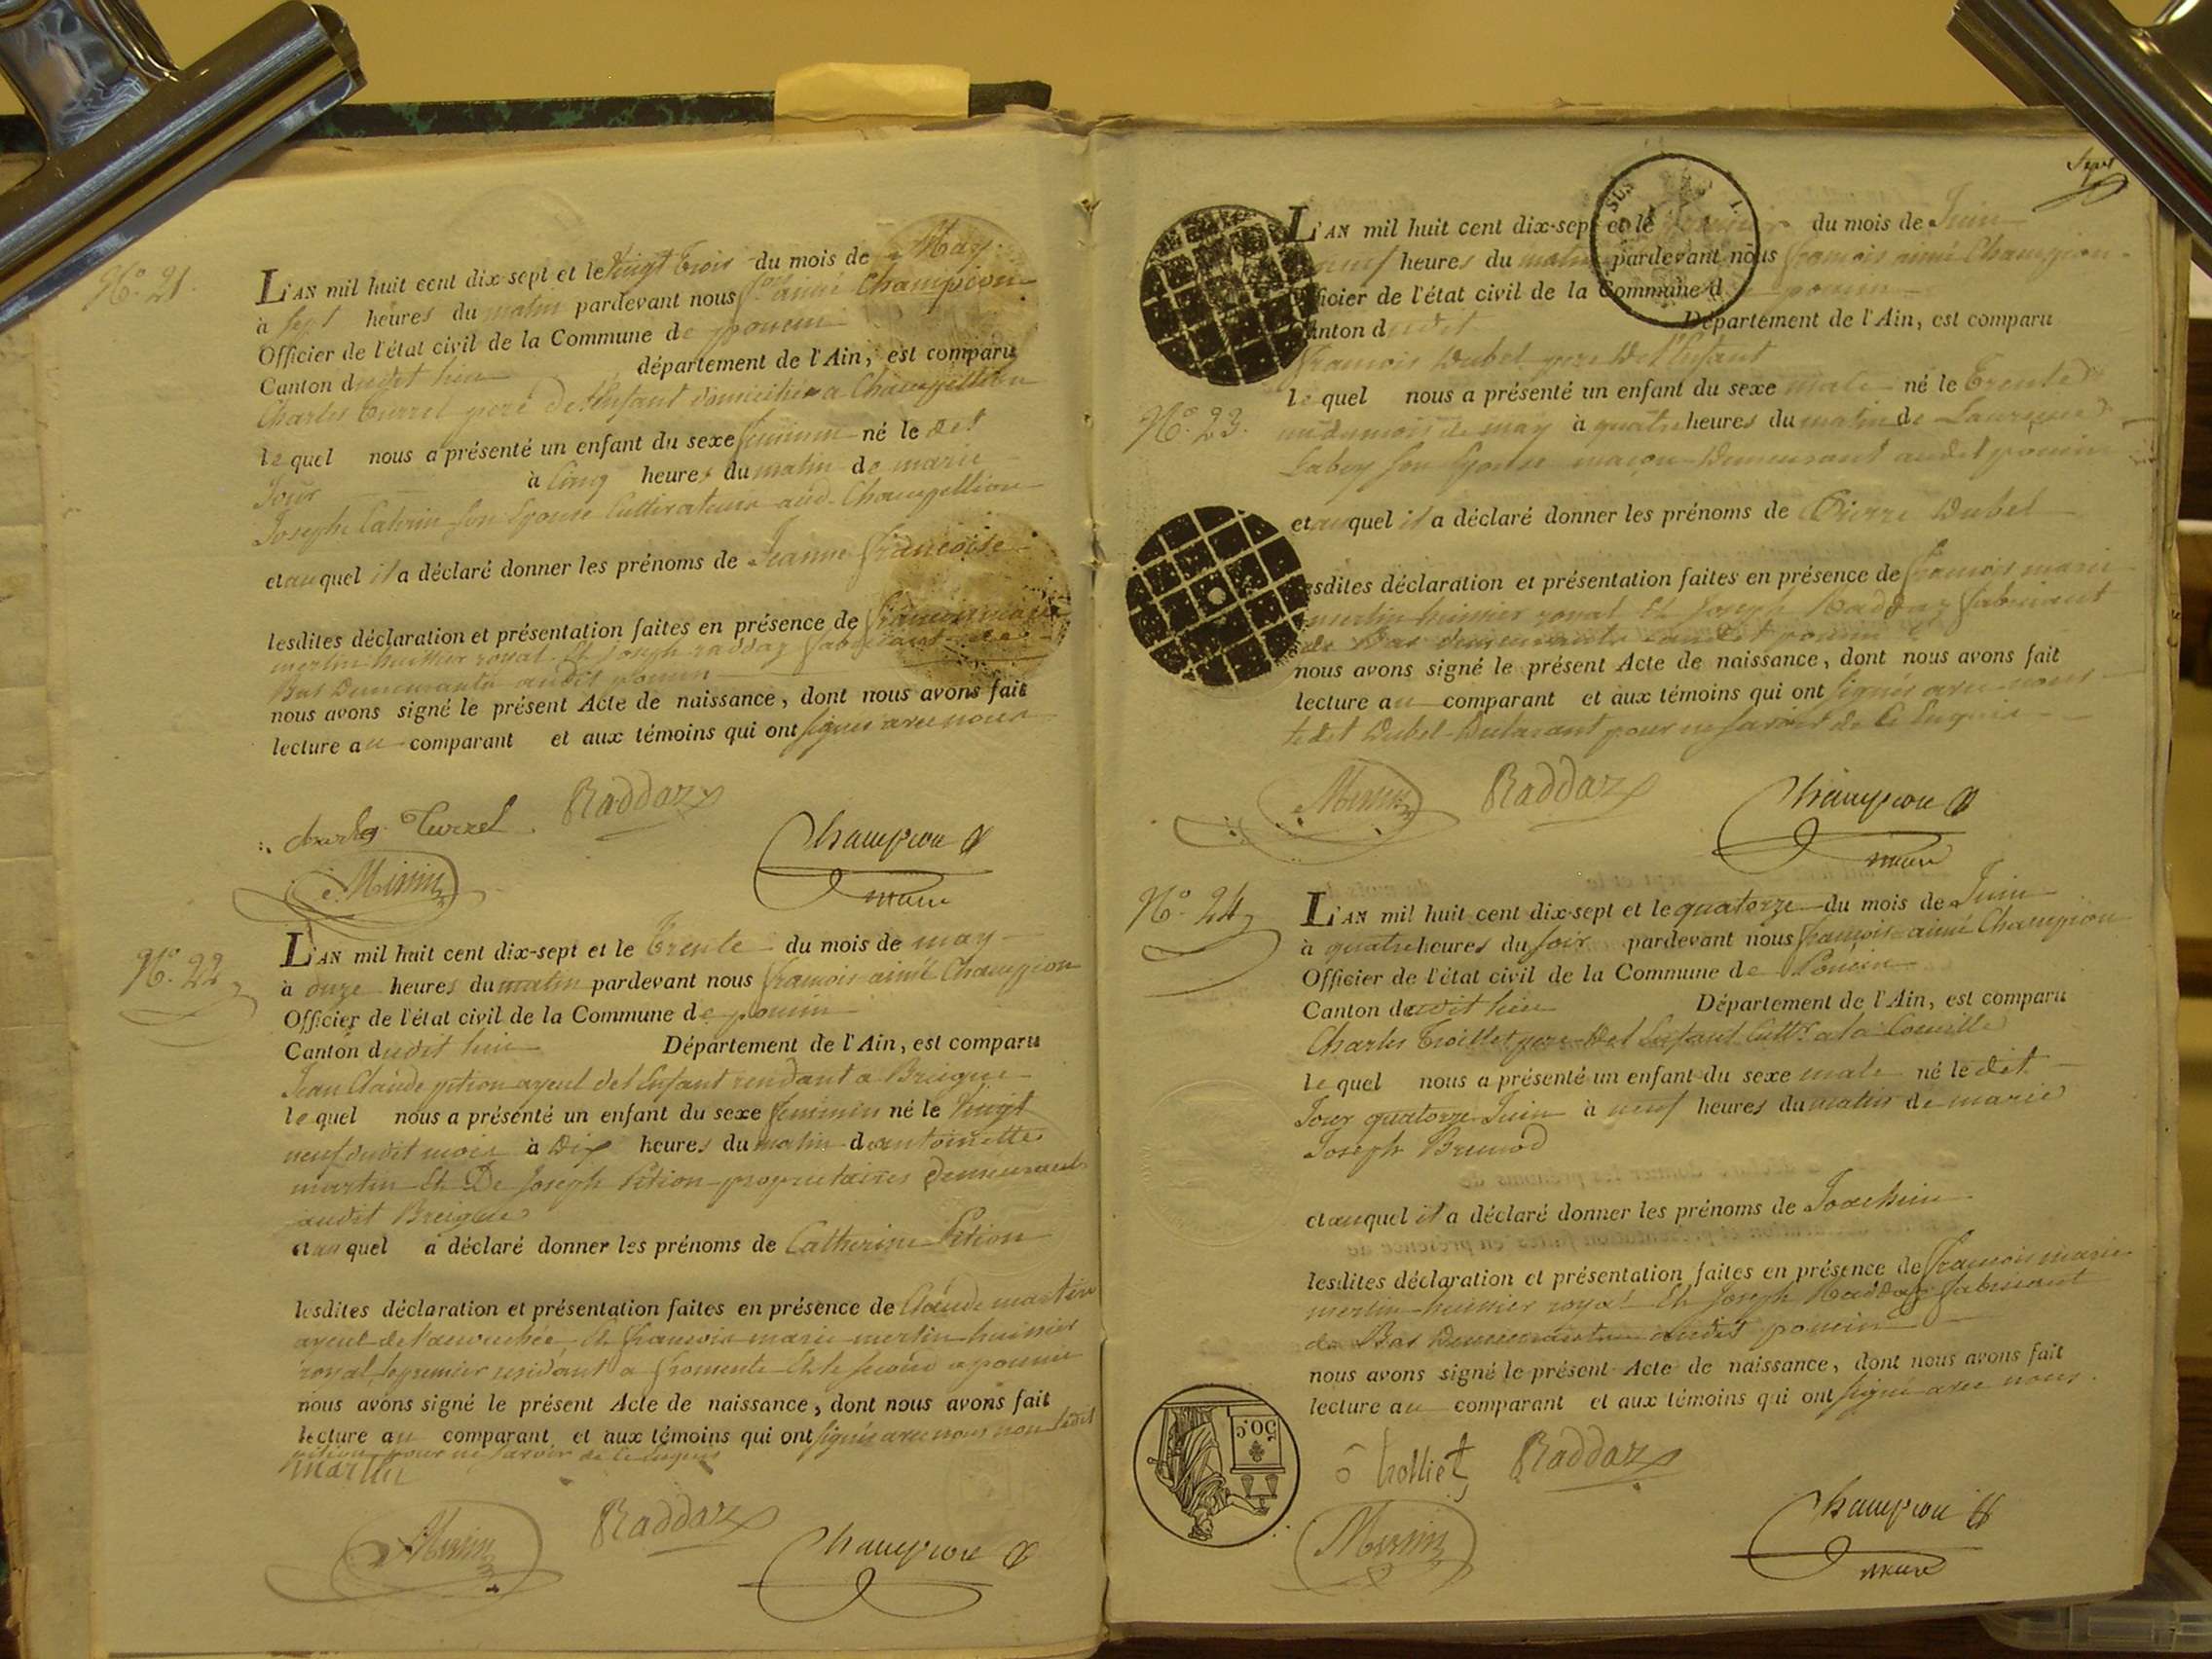 N.º 21.
L'AN mil huit cent dix-sept et le vingt trois du mois de May
à sept heures du matin pardevant nous f.ois aimé Champion
Officier de l'état civil de la Commune de poncin
Canton dudit lieu département de l'Ain, est comparu
Charles Turrel pere de l'Enfant domicilié a Champeillion
lequel nous a présenté un enfant du sexe feminin né le dit
Jour à Cinq heures du matin de marie
Josephe son Epouse Cultivateurs aud. Champeillion
et auquel il a déclaré donner les prénoms de Jeanne françoise
lesdites déclaration et présentation faites en présence de francois marie
merlin huissier royal Et Joseph raddaz fabricant de
Bas Demeurants audit poncin
nous avons signé le présent Acte de naissance, dont nous avons fait
lecture au comparant et aux témoins qui ont signés avec nous
Charles Turrel Raddaz
Champion
Merlin
maire
N.º 22
L'AN mil huit cent dix-sept et le Trente du mois de may
à onze heures du matin pardevant nous francois aimé Champion
Officier de l'état civil de la Commune de poncin
Canton dudit lieu Département de l'Ain, est comparu
Jean Claude pition ayeul del Enfant rendant a
lequel nous a présenté un enfant du sexe feminin né le vingt
neuf dudit mois à Dix heures du matin de antoinette
martin Et De Joseph Pition proprietaires Demeurants
audit
et auquel a déclaré donner les prénoms de Catherine Pition
lesdites déclaration et présentation faites en présence de Claude martin
ayeul de l'accouchée, Et francois marie merlin huissier
royal, le premier residant a fromente Et le second a poncin
nous avons signé le présent Acte de naissance, dont nous avons fait
lecture au comparant et aux témoins qui ont signés avec nous non ledit
pition pour ne savoir de ce enquis
martin
Raddaz
Merlin
Champion
Sept
L'AN mil huit cent dix-sept et le premier du mois de Juin
neuf heures du matin pardevant nous francois aimé Champion
Officier de l'état civil de la Commune de poncin
Canton dudit Département de l'Ain, est comparu
francois Dubel pere de l'Enfant
lequel nous a présenté un enfant du sexe male né le Trente
N.º 23.
un du mois de may à quatre heures du matin de Laurence
Labey son Epouse maçon Demeurant audit poncin
et auquel il a déclaré donner les prénoms de Pierre Dubel
lesdites déclaration et présentation faites en présence de francois marie
merlin huissier royal Et Joseph Raddaz fabricant
de Bas demeurants audit poncin
nous avons signé le présent Acte de naissance, dont nous avons fait
lecture au comparant et aux témoins qui ont signés avec nous
ledit Dubel Declarant pour ne savoir de Ce Enquis
Merlin Raddaz Champion
maire
N.º 24
L'AN mil huit cent dix-sept et le quatorze du mois de Juin
à quatre heures du soir pardevant nous françois aimé Champion
Officier de l'état civil de la Commune de Poncin
Canton dudit lieu Département de l'Ain, est comparu
Charles Trolliet pere del Enfant Cultr. a la
lequel nous a présenté un enfant du sexe male né le dit
Jour quatorze Juin à neuf heures du matin de marie
Joseph Brunod
et auquel il a déclaré donner les prénoms de Joachim
lesdites déclaration et présentation faites en présence de francois marie
merlin huissier royal Et Joseph Raddaz fabricant
de Bas Demeurants audit poncin
nous avons signé le présent Acte de naissance, dont nous avons fait
lecture au comparant et aux témoins qui ont signé avec nous.
50c
trolliet Raddaz
Merlin
Champion
maire